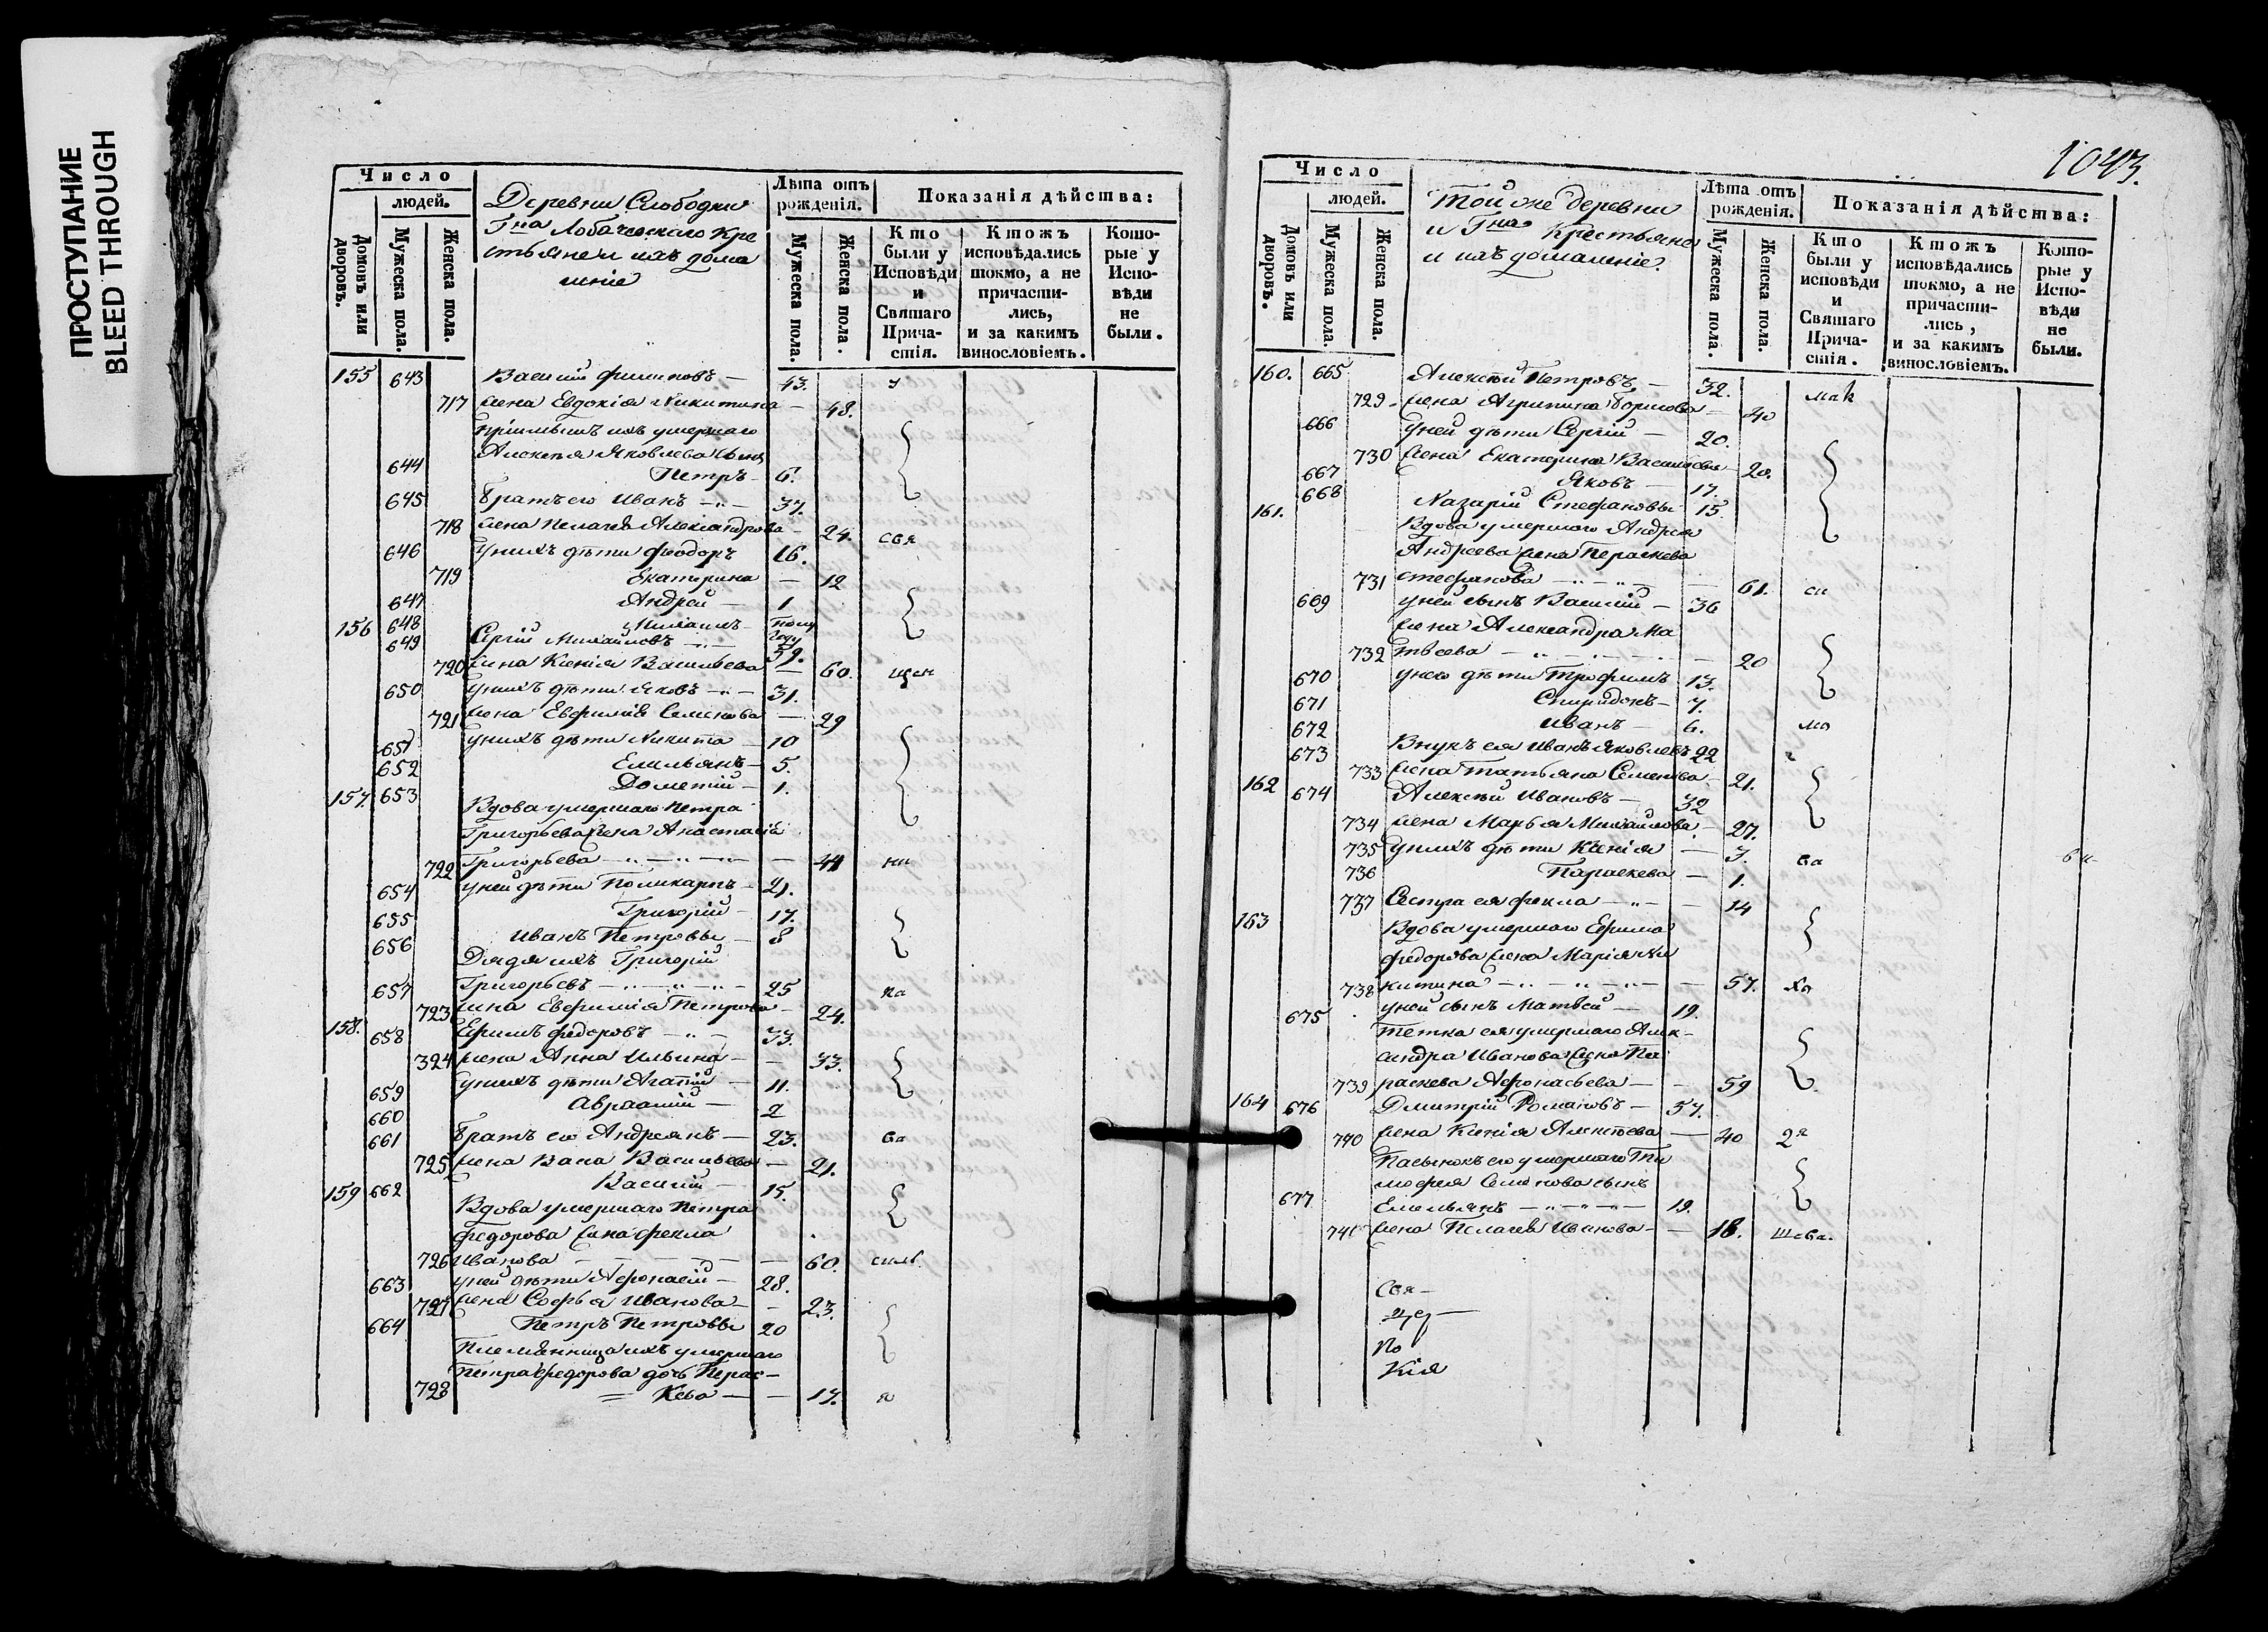 ПРОСТУПАНИЕ
BLEED THROUGH
Число
людей.
Домовъ или дворовъ.
Мужеска пола.
Женска пола.
Деревни Слободки
Гна Лобачевскаго Кре
стьяне и ихъ дома
шніе
Лѣта отъ рожденія.
Мужеска пола.
Женска пола.
Показанія дѣйства:
Кто были у Исповѣди и Святаго Прича-стія.
Ктожъ исповѣдались токмо, а не причасти-лись, и за какимъ винословіемъ.
Кото-рые у Испо-вѣди не были.
155 643 Василій Филиповъ — 43. у
717 жена Евдокія Никитина — 48.
пріимышъ ихъ умершаго
Алексѣя Яковлева сынъ
644 Петръ — 6.
645 братъ его Иванъ — 37.
718 жена Пелагея Александрова — 24. свя
646 у нихъ дѣти Феодоръ 16.
719 Екатерина — 12
647 Андрей — 1
156 648 Михаилъ — полу
году
649 Сергій Михайловъ — 59.
720 жена Ксенія Васильева — 60. щен
650 у нихъ дѣти Яковъ — 31.
721 жена Евфимія Семенова — 29
651 у нихъ дѣти Никита — 10
652 Емельянъ — 5.
157. 653 Дометій — 1.
Вдова умершаго Петра
Григорьева жена Анастасія
722 Григорьева — 44 ни
654 у ней дѣти Поликарпъ — 21.
655 Григорій — 17.
656 Иванъ Петровы — 8
Дядя ихъ Григорій
657 Григорьевъ — 25 ка
723 жена Евфимія Петрова — 24.
158. 658 Ефимъ Федоровъ — 33.
324 жена Анна Ильина — 33.
659 у нихъ дѣти Агапій — 11.
660 Авраамій — 2
661 братъ его Андреянъ — 23. ва
725 жена Васа Васильева — 21.
159 662 Василій — 15.
Вдова умершаго Петра
Федорова жена Фекла
726 Иванова — 60. силь
663 у ней дѣти Афонасій — 28.
727 жена Софья Иванова — 23.
664 Петръ Петровы 20
Племянница ихъ умершаго
Петра Федорова дочь Перас-
728 = кева — 17. я
1043.
Число
людей.
Домовъ или дворовъ.
Мужеска пола.
Женска пола.
Той же деревни
и Гна Крестьяне
и ихъ домашніе.
Лѣта отъ рожденія.
Мужеска пола.
Женска пола.
Показанія дѣйства:
Кто были у исповѣди и Святаго Прича-стія.
Ктожъ исповѣдались токмо, а не причасти-лись, и за какимъ винословіемъ.
Кото-рые у Испо-вѣди не были.
160. 665 Алексѣй Петровъ — 32. мак
729 жена Агрипина Борисова — 40
666 у ней дѣти Сергій — 20.
730 жена Екатерина Васильева — 20.
667 Яковъ — 17.
668 Назарій Стефановы 15.
161. Вдова умершаго Андрея
Андреева жена Пераскева
731 Стефанова — 61. си
669 у ней сынъ Василій — 36
жена Александра Ма
732 твѣева — 20
670 у него дѣти Трофимъ 13.
671 Спиридонъ — 7.
672 Иванъ — 6. мо
673 Внукъ ея Иванъ Яковлевъ 22
733 жена Татьяна Семенова — 21.
162 674 Алексѣй Ивановъ — 32
734 жена Марья Михайлова — 27.
735 у нихъ дѣти Ксенія — 3. ва
736 Параскева — 1.
737 Сестра ея Фекла — 14
163 Вдова умершаго Ефима
Федорова жена Марія Ни
738 китина — 57. ха
675 у ней сынъ Матвѣй — 19.
Тетка ея умершаго Алек-
сандра Иванова жена Па
739 раскева Афонасьева — 59
164 676 Дмитрій Романовъ — 57.
740 жена Ксенія Алексѣева — 40 2я
Пасынокъ его умершаго Ти
мофея Семенова сынъ
677 Емельянъ — 19.
741 жена Пелагея Иванова — 18. шева.
Свя —
ще —
по
кія